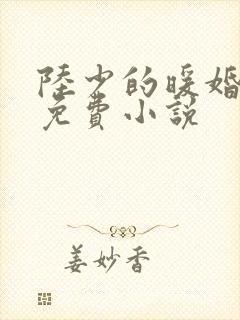 陸少的暖婚
免費小說
姜妙香